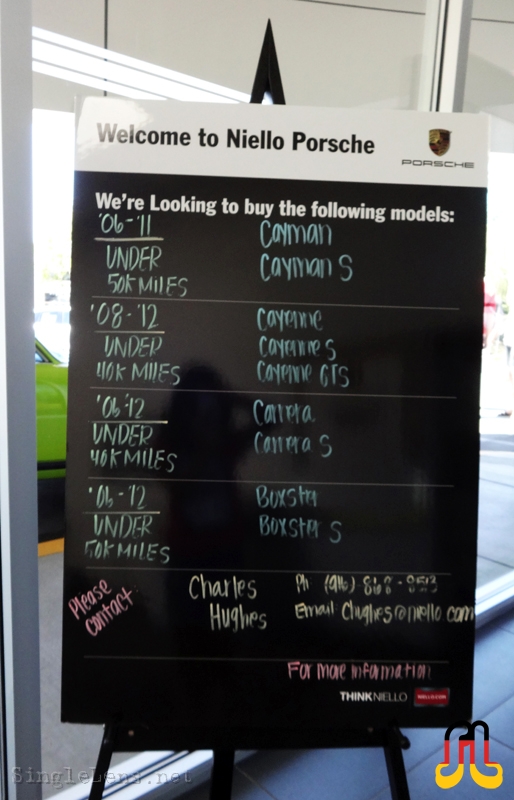 Welcome to Niello Porsche
PORSCHE
We're Looking to buy the following models:
'06-'11 Cayman
UNDER Cayman S
50K MILES
'08-'12 Cayenne
UNDER Cayenne S
40K MILES Cayenne GTS
'06-'12 Carrera
UNDER Carrera S
40K MILES
'06-'12 Boxster
UNDER Boxster S
50K MILES
Please Charles Ph: (916)
contact Hughes Email Chughes@niello.com
For more information
THINKNIELLO NIELLO.COM
SingleLens.net